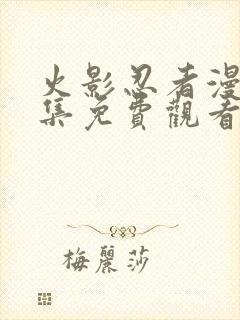 火影忍者漫
集免費觀看
梅麗莎